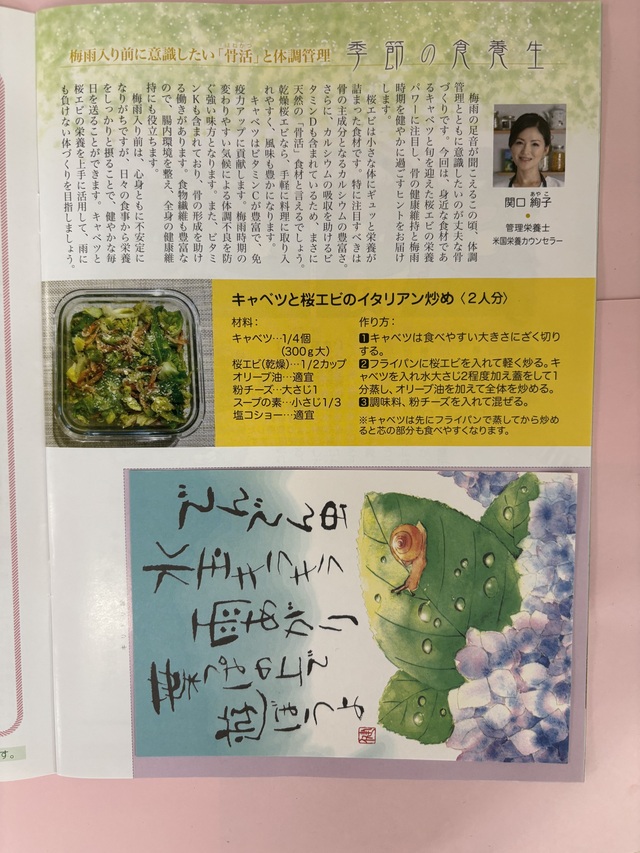 梅雨入り前に意識したい「骨活」と体調管理
季節の食養生
梅雨の足音が聞こえるこの頃、体調
管理とともに意識したいのが丈夫な骨
づくりです。今回は、身近な食材であ
るキャベツと旬を迎えた桜エビの栄養
パワーに注目し、骨の健康維持と梅雨
時期を健やかに過ごすヒントをお届け
します。
桜エビは小さな体にギュッと栄養が
詰まった食材です。特に注目すべきは
骨の主成分となるカルシウムの豊富さ。
さらに、カルシウムの吸収を助けるビ
タミンDも含まれているため、まさに
天然の「骨活」食材と言えるでしょう。
乾燥桜エビなら、手軽に料理に取り入
れやすく、風味も豊かになります。
キャベツはビタミンCが豊富で、免
疫力アップに貢献します。梅雨時期の
変わりやすい気候による体調不良を防
ぐ強い味方となります。また、ビタミ
ンKも含まれており、骨の形成を助け
る働きがあります。食物繊維も豊富な
ので、腸内環境を整え、全身の健康維
持にも役立ちます。
梅雨入り前は、心身ともに不安定に
なりがちですが、日々の食事から栄養
をしっかりと摂ることで、健やかな毎
日を送ることができます。キャベツと
桜エビの栄養を上手に活用して、雨に
も負けない体づくりを目指しましょう。
関口 絢子
あや こ
管理栄養士
米国栄養カウンセラー
キャベツと桜エビのイタリアン炒め〈2人分〉
材料：
キャベツ…1/4個
(300g大)
桜エビ(乾燥)…1/2カップ
オリーブ油…適宜
粉チーズ…大さじ1
スープの素…小さじ1/3
塩コショー…適宜
作り方：
1キャベツは食べやすい大きさにざく切り
する。
2フライパンに桜エビを入れて軽く炒る。キ
ャベツを入れ水大さじ2程度加え蓋をして1
分蒸し、オリーブ油を加えて全体を炒める。
3調味料、粉チーズを入れて混ぜる。
※キャベツは先にフライパンで蒸してから炒め
ると芯の部分も食べやすくなります。
す。